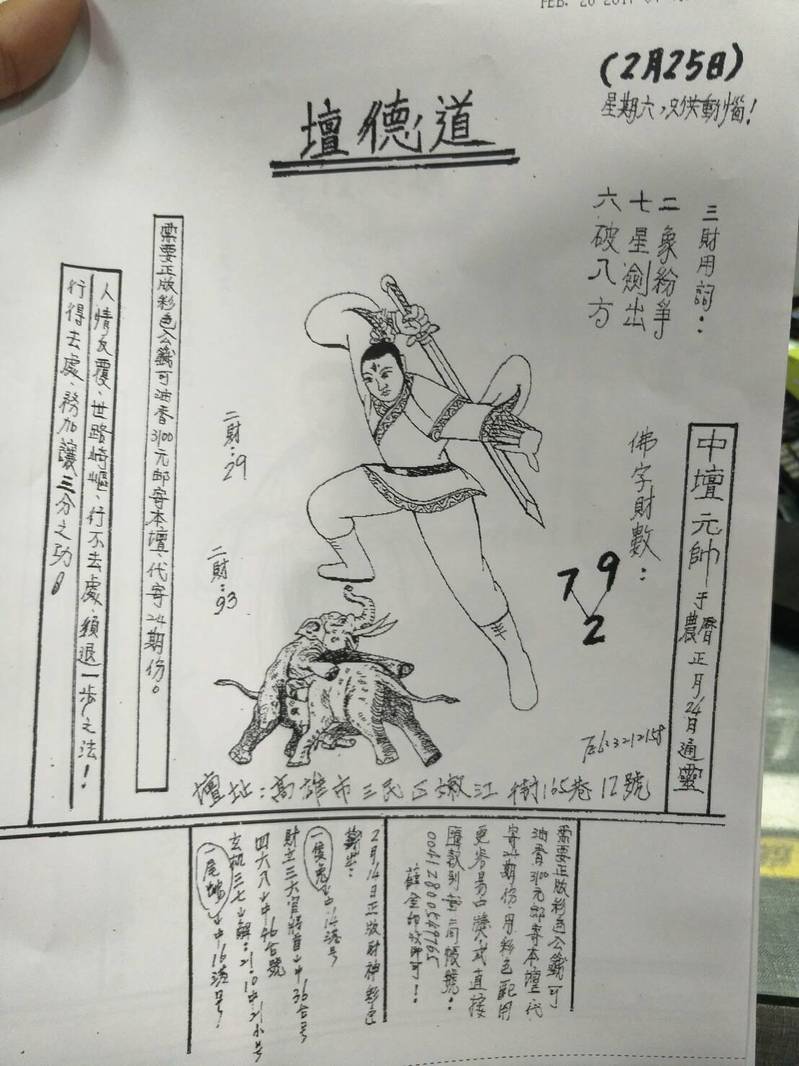 FEB. 26 2017
(2月25日)
星期六,只供動惱!
壇德道
三財用詞:
二象紛爭
七星劍出
六破八方
中壇元帥于農曆正月24日通靈
佛字財數:
7 9
2
二財:29
二財:93
需要正版彩色公籤可油香3100元郵寄本壇、代寄24期份。
人情反覆、世路崎嶇、行不去處、須退一步之法!
行得去處、務加讓三分之功!
壇址:高雄市三民区嫩江街165巷12號
需要正版彩色公籤可
油香3100元郵寄本壇代
寄24期份、用彩色配用
更容易中獎、或直接
匯款到
00412800549765
2月14日正版財神彩色
期出:
一隻兔↓中:14港号
財立三大首↓中36合号
四六八↓中46合號
玄机三七↓解:21.10中21小号
一尾↓中16港号